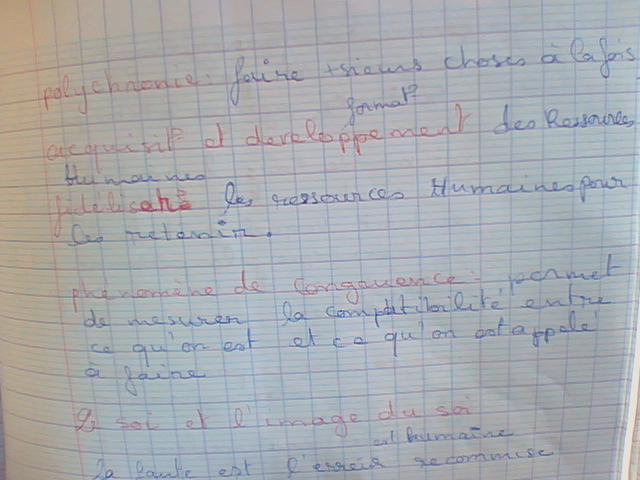 polychronie: faire +sieurs choses à la fois
format°
acquisit° et developpement des Ressources
Humaines
fidelisat° les ressources Humaines pour
les retenir.
phénomène de Congruence: permet
de mesurer la comptibilité entre
ce qu'on est et ce qu'on est appelé
à faire
le soi et l'image du soi
est humaine
la faute est l'erreur recommise